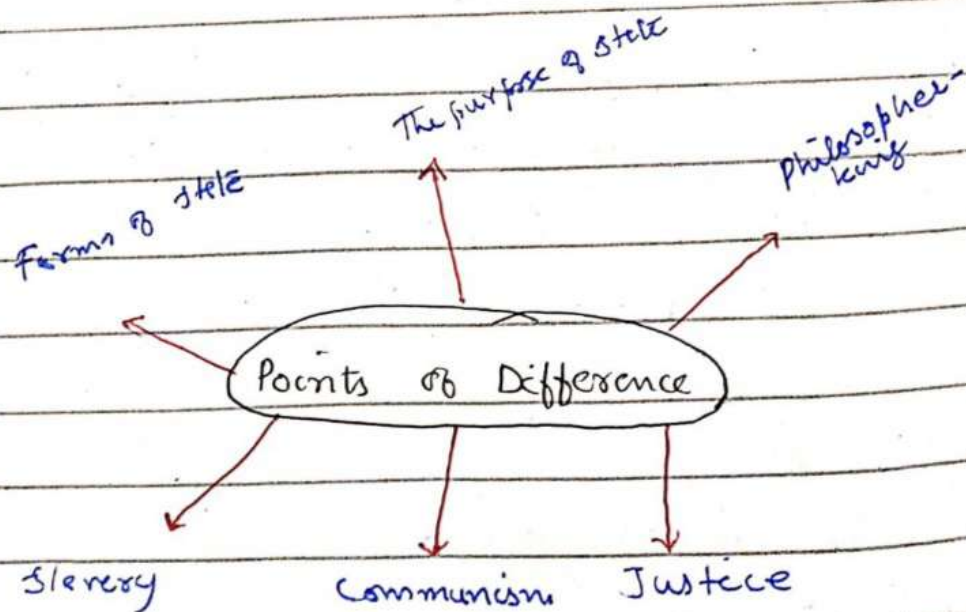 The purpose of state
Philosopher-
king
Forms of state
Points of Difference
Slavery
Communism
Justice